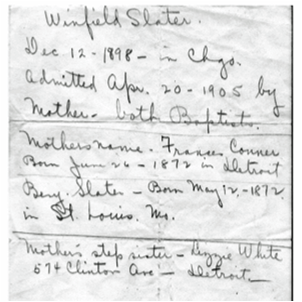 Winfield Slater.
Dec. 12 - 1898 - in Chgo.
Admitted Apr. 20 - 1905 by
Mother - both Baptists.
Mothers name - Frances Conner
Born June 26 - 1872 in Detroit
Benj. Slater - Born May 12, -1872
in St. Louis, Mo.
Mother's step sister - Lizzie White
574 Clinton Ave - Detroit -